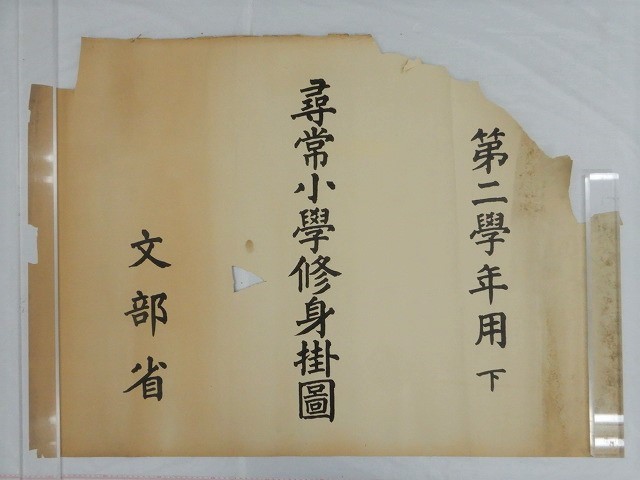 第二學年用 下
尋常小學修身掛圖
文部省